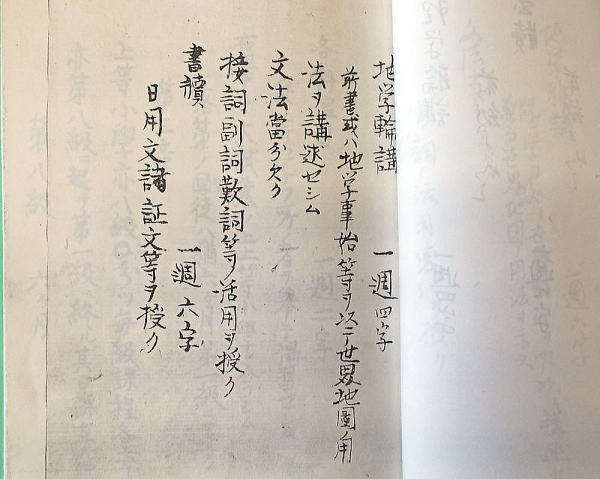 地学輪講 一週四字
前書或ハ地学事始等ヲ以テ世界地圖ノ用
法ヲ講述セシム
文法當分欠ク
接詞副詞歎詞等ノ活用ヲ授ク
書牘 一週六字
日用文諸証文等ヲ授ク